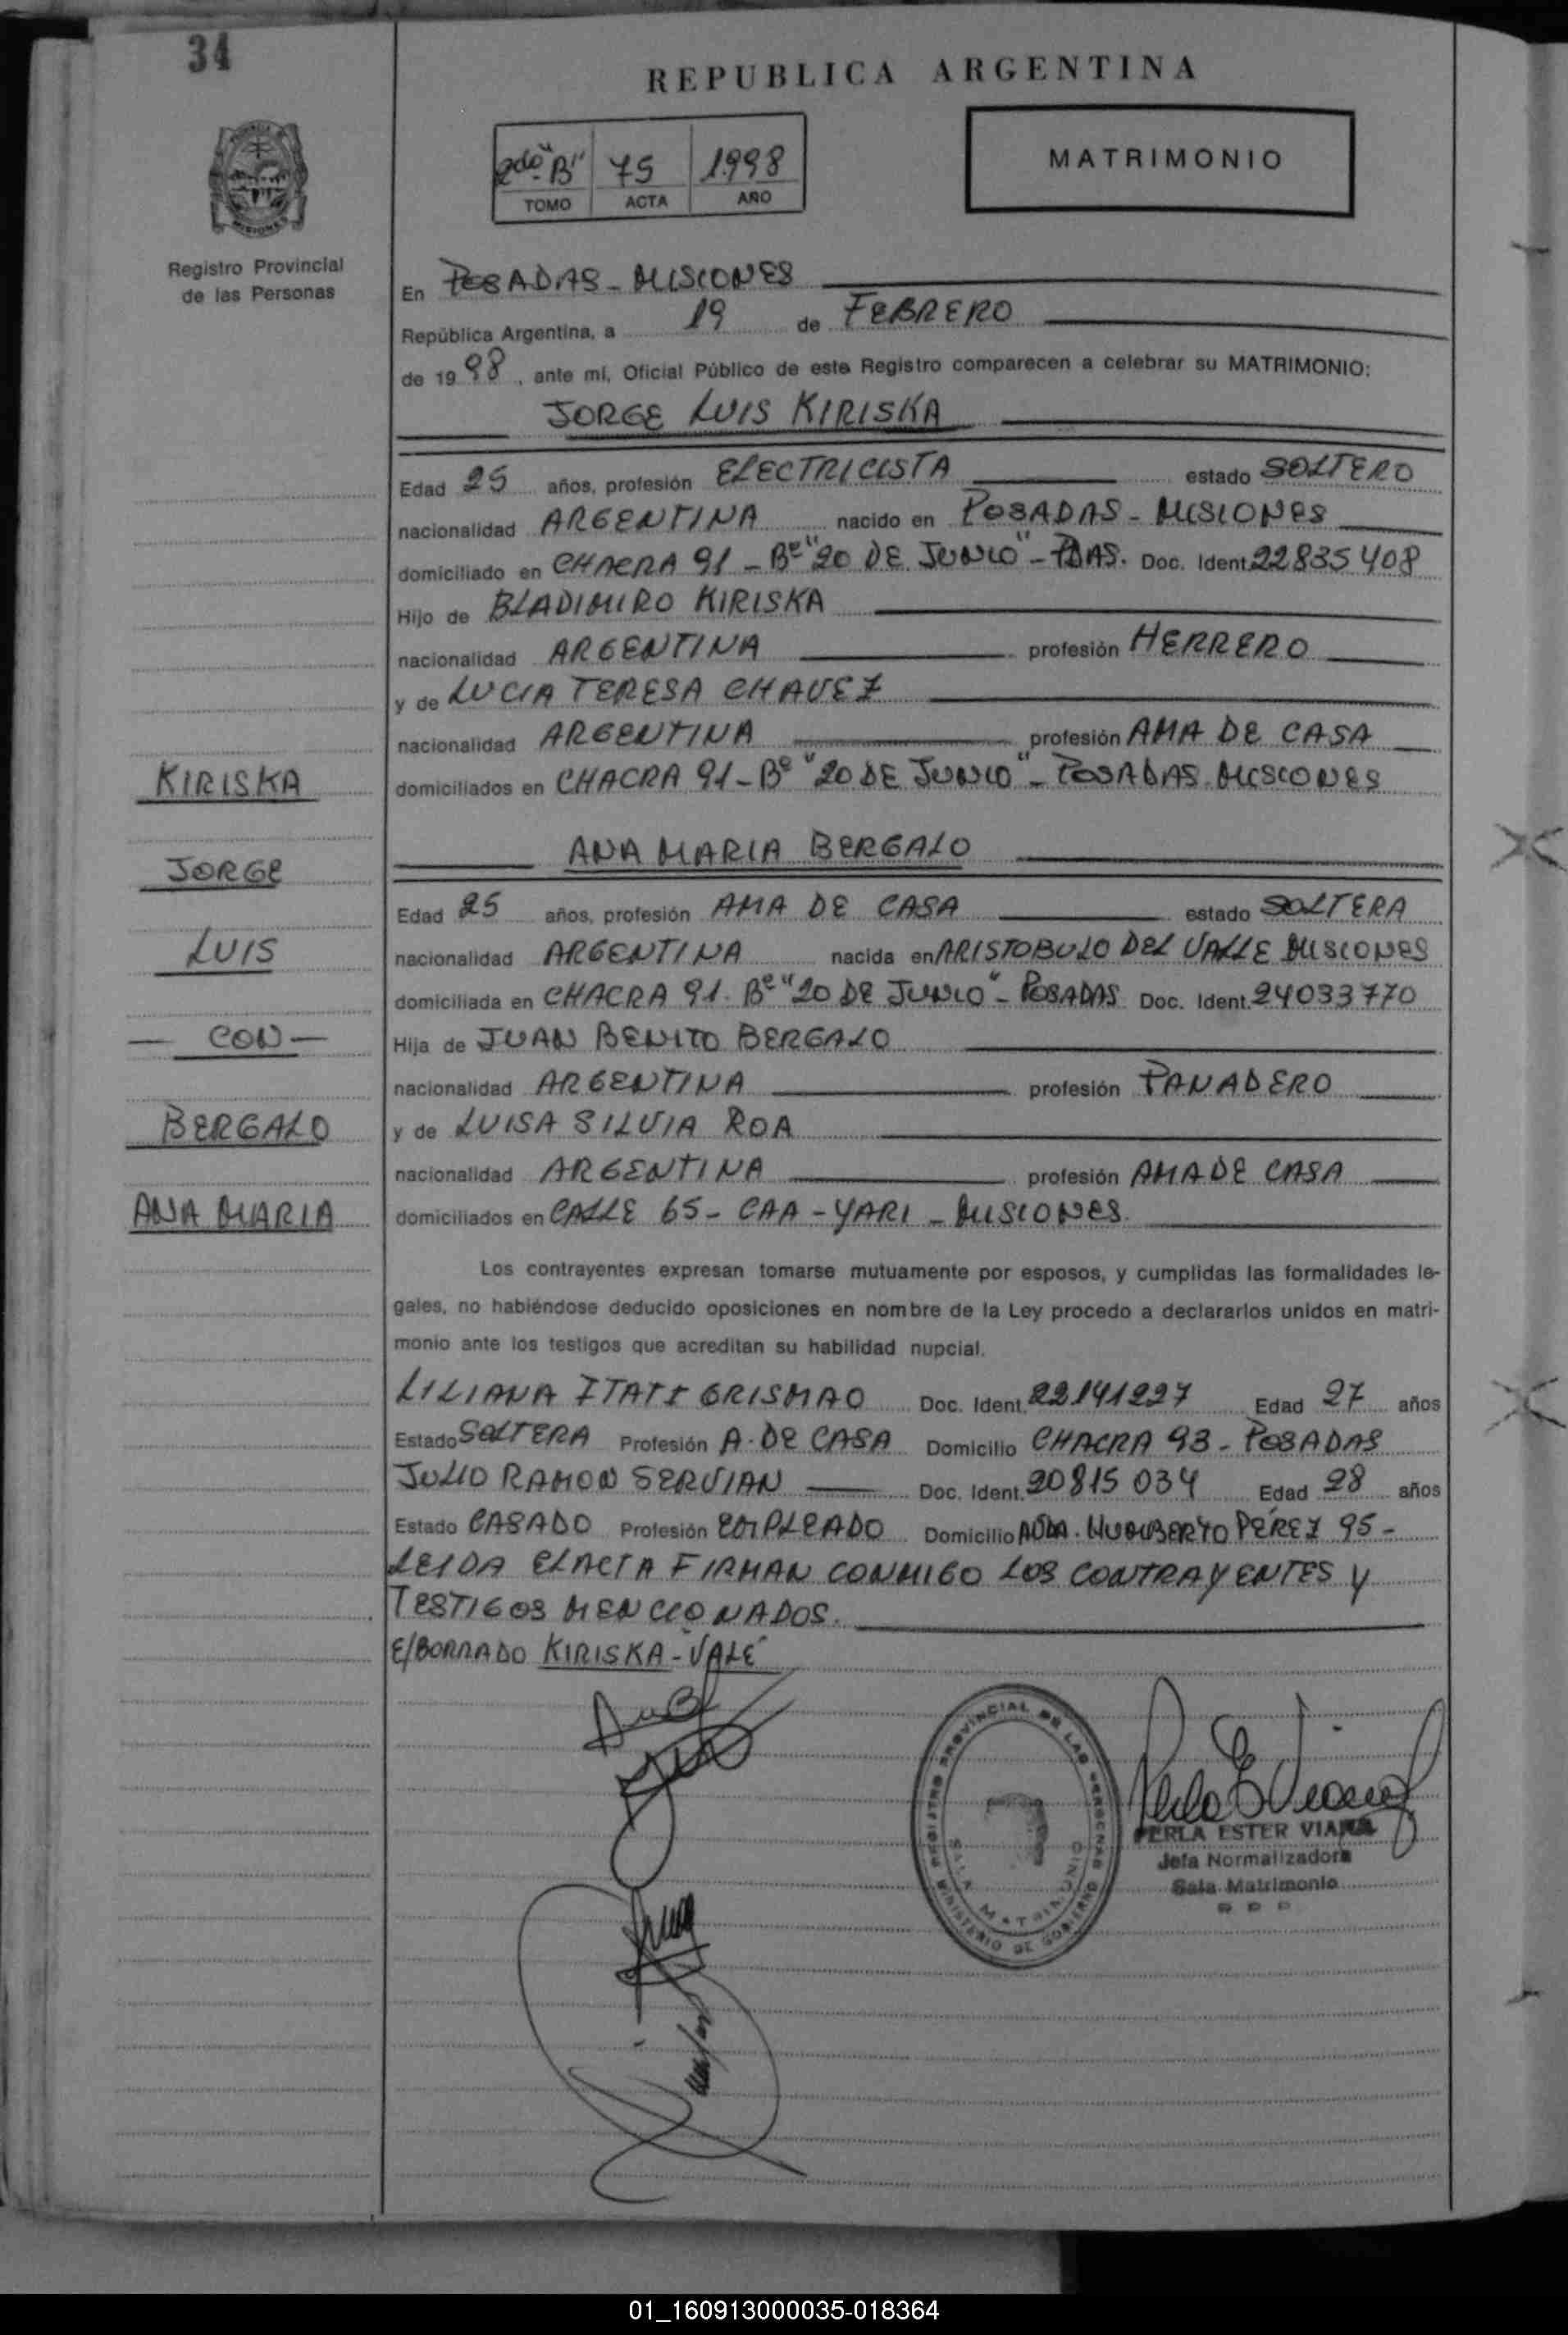 34
REPUBLICA ARGENTINA
2do "B" 75 1998
TOMO ACTA AÑO
MATRIMONIO
Registro Provincial
de las Personas
En POSADAS - MISIONES
República Argentina, a 19 de FEBRERO
de 1998, ante mí, Oficial Público de este Registro comparecen a celebrar su MATRIMONIO:
JORGE LUIS KIRISKA
Edad 25 años, profesión ELECTRICISTA estado SOLTERO
nacionalidad ARGENTINA nacido en POSADAS - MISIONES
domiciliado en CHACRA 91 - Bº "20 DE JUNIO" - PDAS. Doc. Ident. 22835408
Hijo de BLADIMIRO KIRISKA
nacionalidad ARGENTINA profesión HERRERO
y de LUCIA TERESA CHAVEZ
nacionalidad ARGENTINA profesión AMA DE CASA
domiciliados en CHACRA 91 - Bº "20 DE JUNIO" - POSADAS - MISIONES
KIRISKA
JORGE
LUIS
- CON -
BERGALO
ANA MARIA
ANA MARIA BERGALO
Edad 25 años, profesión AMA DE CASA estado SOLTERA
nacionalidad ARGENTINA nacida en ARISTOBULO DEL VALLE MISIONES
domiciliada en CHACRA 91. Bº "20 DE JUNIO" - POSADAS Doc. Ident. 24033770
Hija de JUAN BENITO BERGALO
nacionalidad ARGENTINA profesión PANADERO
y de LUISA SILVIA ROA
nacionalidad ARGENTINA profesión AMA DE CASA
domiciliados en CALLE 65 - CAA - YARI - MISIONES.
Los contrayentes expresan tomarse mutuamente por esposos, y cumplidas las formalidades le-
gales, no habiéndose deducido oposiciones en nombre de la Ley procedo a declararlos unidos en matri-
monio ante los testigos que acreditan su habilidad nupcial.
LILIANA ITATI GRISMAO Doc. Ident. 22141227 Edad 27 años
Estado SOLTERA Profesión A. DE CASA Domicilio CHACRA 93 - POSADAS
JULIO RAMON SERVIAN Doc. Ident. 20815034 Edad 28 años
Estado CASADO Profesión EMPLEADO Domicilio AVDA. HUMBERTO PÉREZ 95 -
LEIDA EL ACTA FIRMAN CONMIGO LOS CONTRAYENTES Y
TESTIGOS MENCIONADOS.
E/BORRADO KIRISKA - VALE
REGISTRO PROVINCIAL DE LAS PERSONAS
SALA MATRIMONIO
MINISTERIO DE GOBIERNO
PERLA ESTER VIANA
Jefa Normalizadora
Sala Matrimonio
01_160913000035-018364